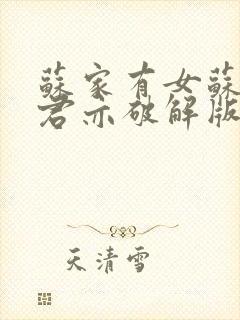 蘇家有女蘇
君亦破解版
天清雪